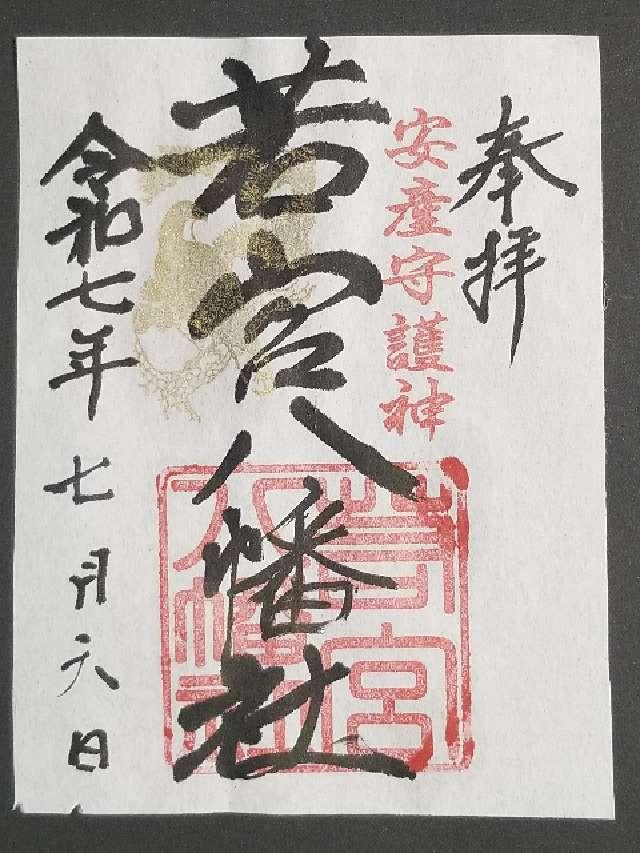 奉拝
安産守護神
若宮八幡社
若宮
八幡社
令和七年七月六日